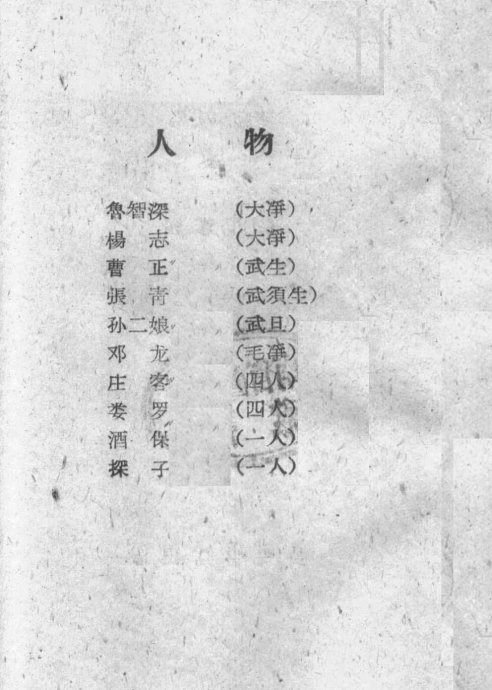 人 物
魯智深 (大淨)
楊 志 (大淨)
曹 正 (武生)
張 青 (武須生)
孙二娘 (武旦)
邓 龙 (毛淨)
庄 客 (四人)
娄 罗 (四人)
酒 保 (一人)
探 子 (一人)